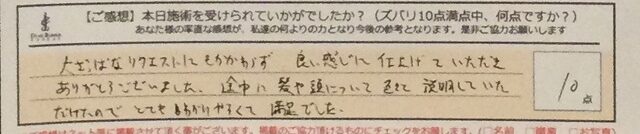 【ご感想】本日施術を受けられていかがでしたか？（ズバリ10点満点中、何点ですか？）
あなた様の率直な感想が、私達の何よりの力となり今後の参考となります。是非ご協力お願いします
大ざっぱなリクエストにもかかわらず 良い感じに 仕上げて いただき
ありがとうございました。途中に 髪や頭について 色々 説明していた
だけたので とても わかりやすくて 満足でした。
10点